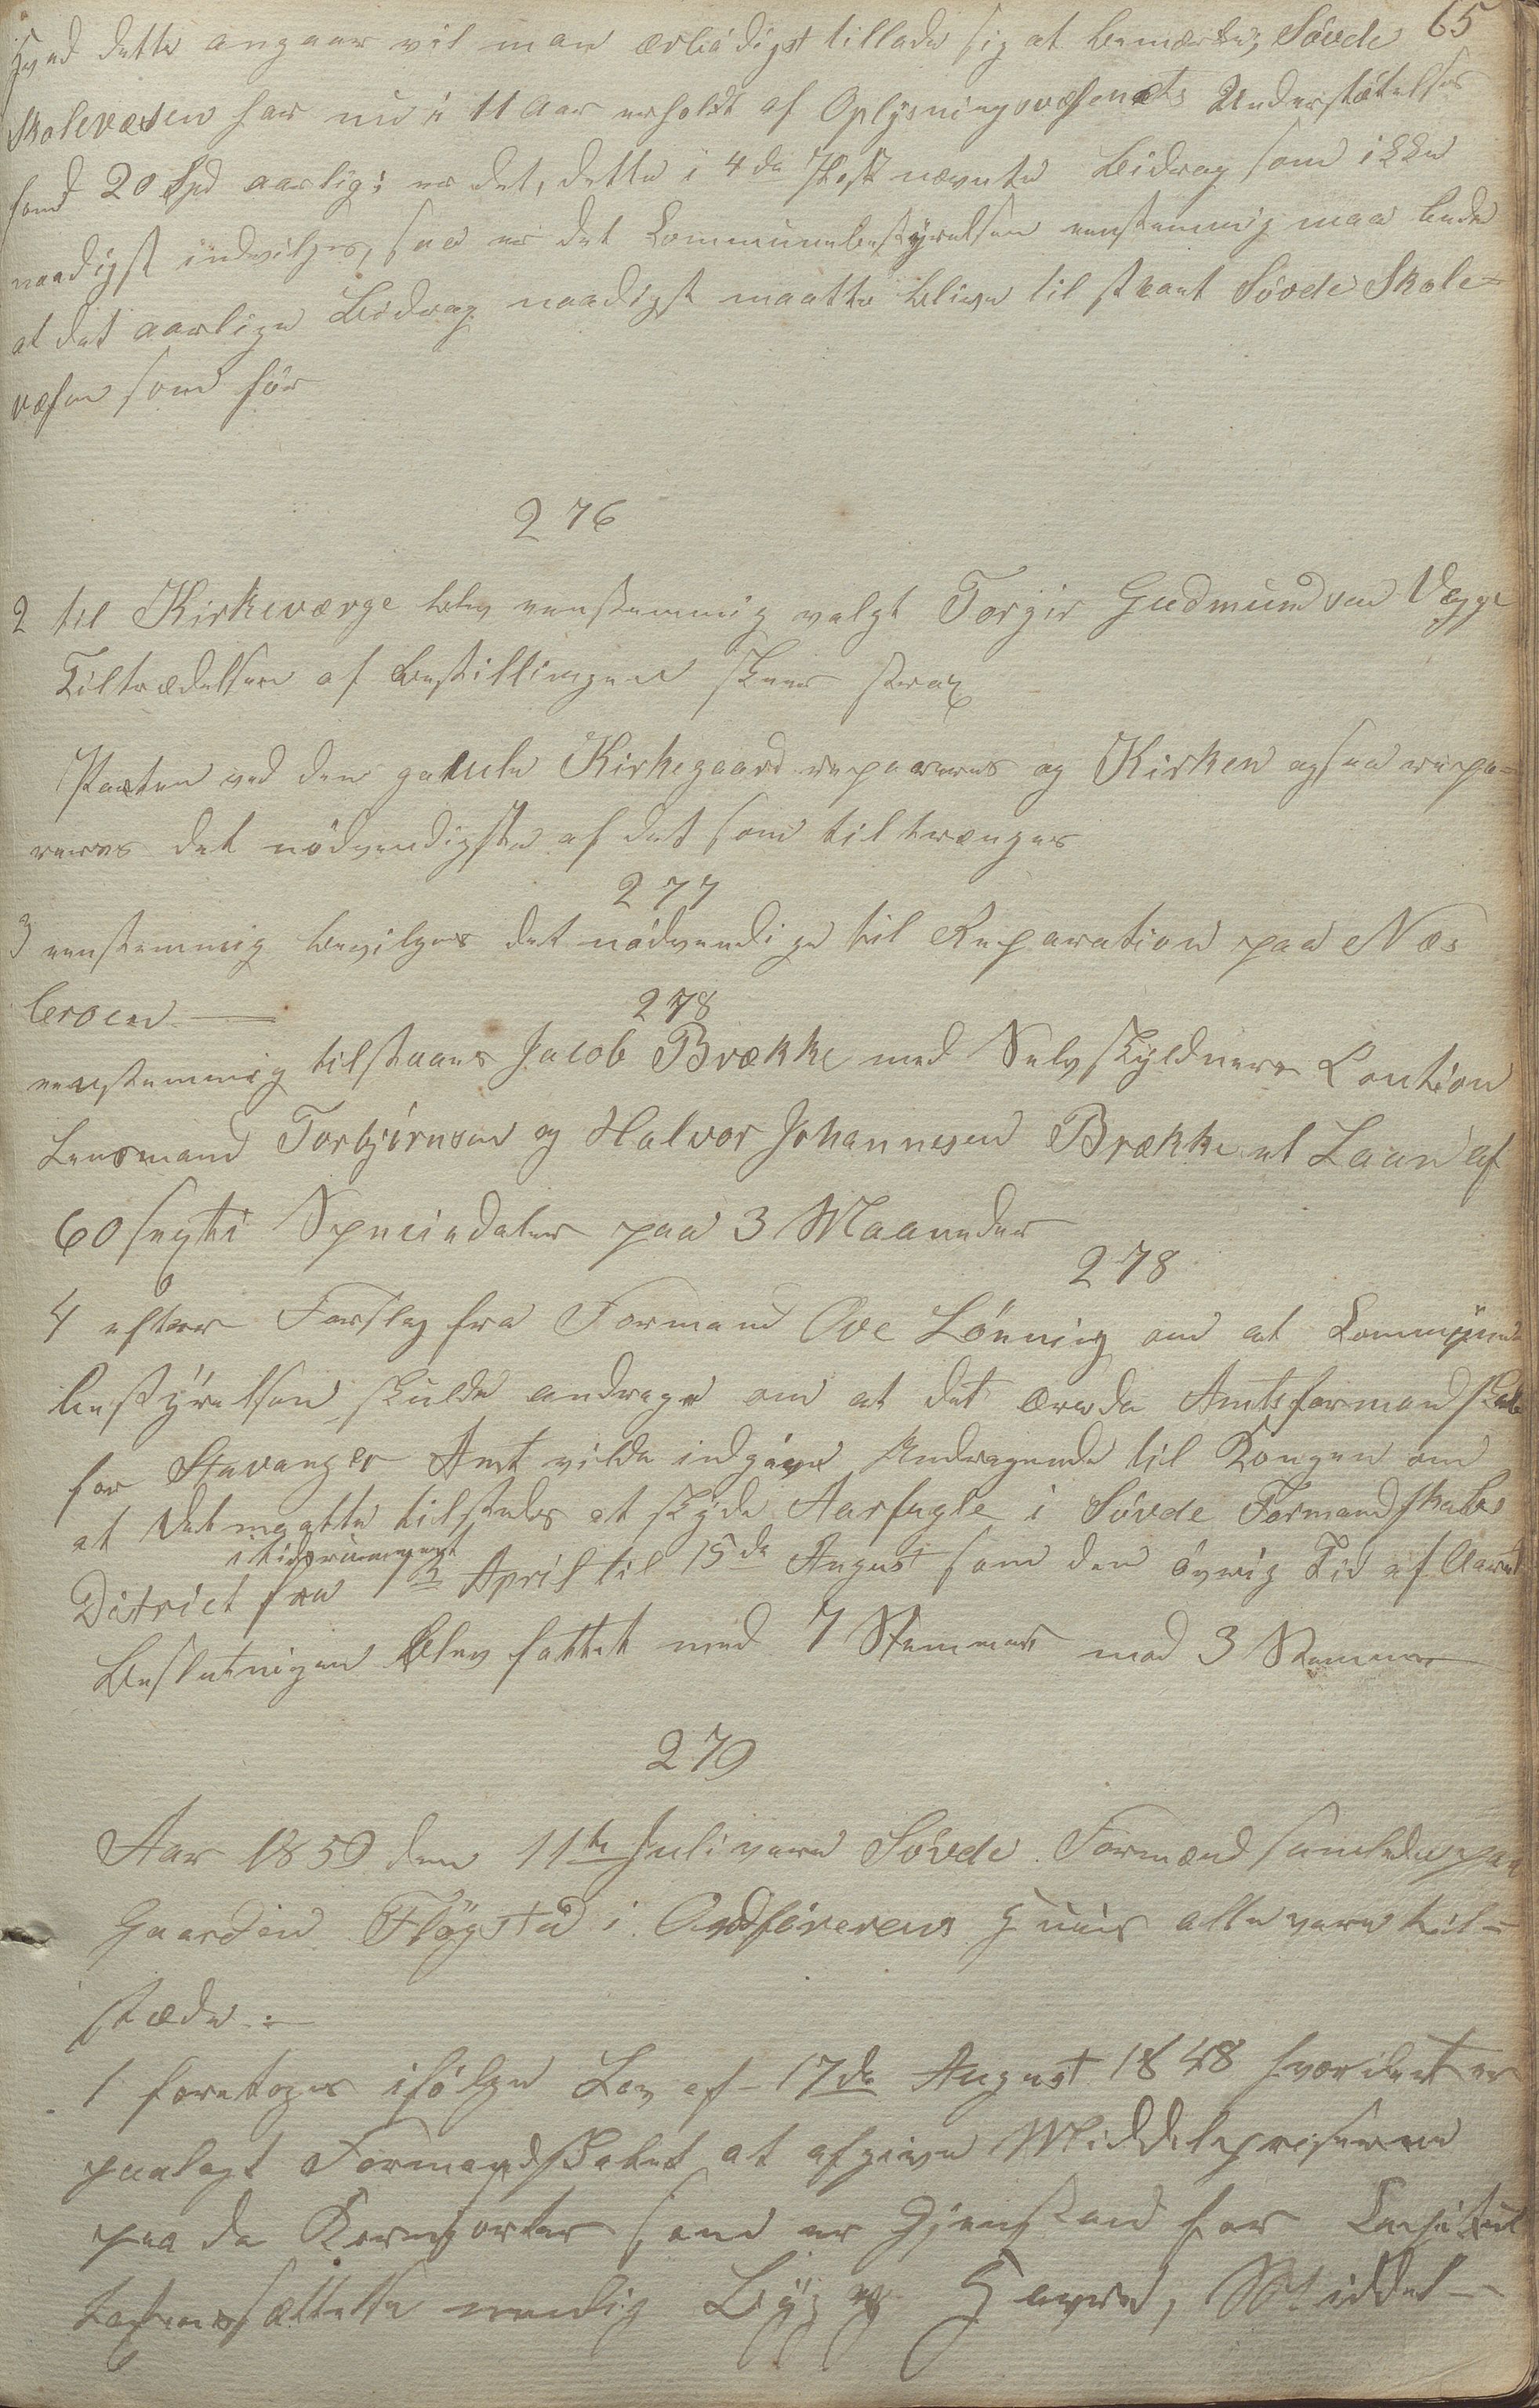 65
Hvad dette angaar vil man ærbødigst tillade sig at bemærke, Søvde
Skolevæsen har nu i 11 Aar erholdt af Oplysningsvæsenets Understøtelses
fond 20 Spd aarlig; er det, dette i 4de Post nævnte Bidrag som ikke
naadigst indvilges, saa er det Communebestyrelsen eenstemmig maa bede
at det aarlige Bidrag naadigst maatte blive til staaet Søvde Skole-
væsen som før
276
2 til Kirkeværge blev eenstemmig valgt Torgir Gudmundsen Vægge
Tiltrædelsen af Bestillingen skeer strax
Porten ved den gamle Kirkegaard repareres og Kirken ogsaa repa-
reres det nødvendigste af det som tiltrænges
277
3 eenstemmig bevilges det nødvendige til Reparation paa Næs
broen —
278
eenstemmig tilstaaes Jacob Brække med Selvskyldner Caution
Lensmand Torbjørnsen og Halvor Johannesen Brække et Laan af
60 sexti Speciedaler paa 3 Maaneder
278
4 efter Forslag fra Formand Ove Lønning om at Commune
bestyrelsen skulde andrage om at det ærede Amtsformandskab
for Stavanger Amt vilde indgive Andragende til Kongen om
at det maatte tilstedes at skyde Aarfugle i Søvde Formandskabs
i tidsrummet
Ditrict fra 1ste April til 15de August som den øvrig Tid af Aaret
Beslutnigen blev fattet med 7 Stemmer mod 3 Stemmer
279
Aar 1859 den 11te Juli vare Søvde Formænd samlede paa
Gaarden Fløgstad i Ordførerens Huus alle vare til-
stæde. —
1 foretoges ifølge Lov af 17de August 1848 hvor det er
paalagt Formandskabet at afgive Middelpriserne
paa de Kornsorter som er Gjenstand for Capitul
taxtens sættelse nemlig Byg og Havre, Middel-